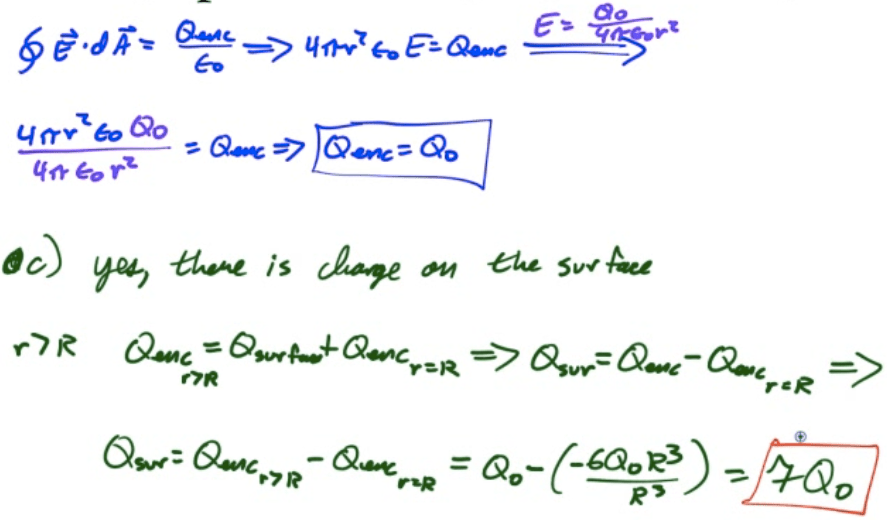 ∮ E⃗·dA⃗ = Qenc/ε₀ ⟹ 4πr²ε₀E = Qenc ⟹ E = Q₀/4πε₀r²
4πr²ε₀Q₀/4πε₀r² = Qenc ⟹ Qenc = Q₀
c) yes, there is charge on the surface
r>R Qenc r>R = Qsurface + Qenc r=R ⟹ Qsur = Qenc - Qenc r=R ⟹
Qsur = Qenc r>R - Qenc r=R = Q₀ - (-6Q₀R³/R³) = 7Q₀